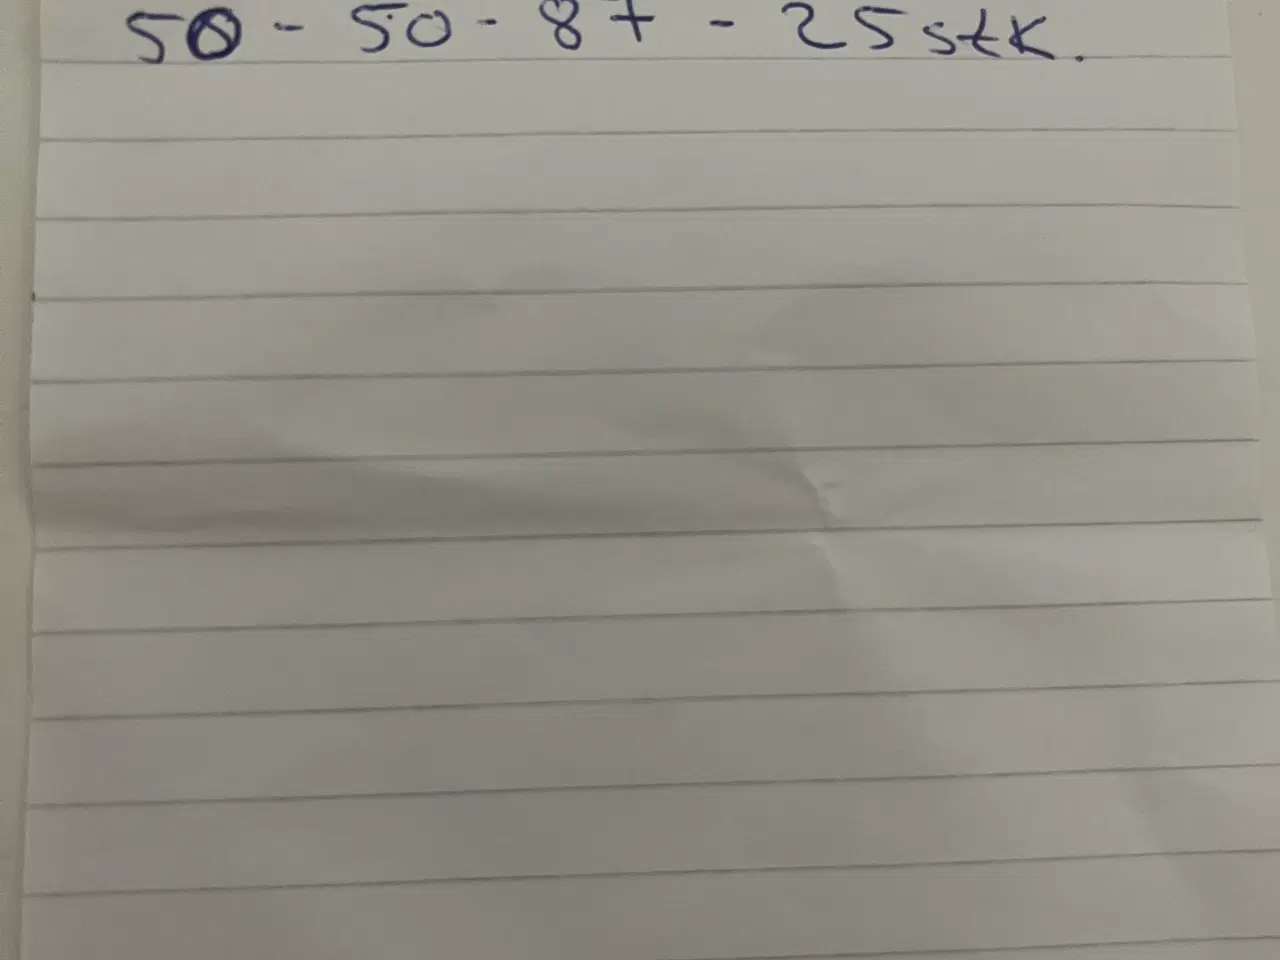 50 - 50 - 87 - 25 stk.